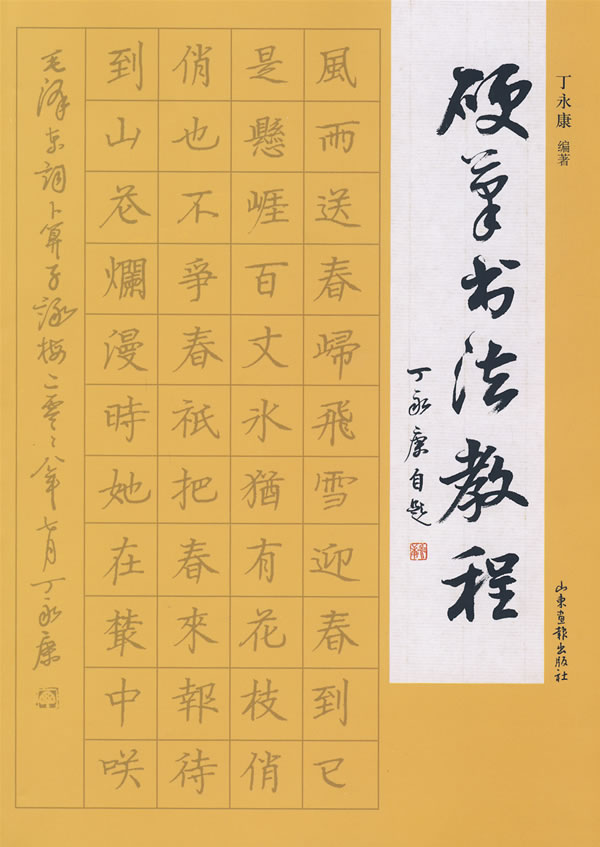 丁永康 编著
硬笔书法教程
丁永康自题
山东画报出版社
風雨送春歸飛雪迎春到已
是懸崖百丈冰猶有花枝俏
俏也不爭春祇把春來報待
到山花爛漫時她在叢中咲
毛澤东詞卜算子詠梅二零零八年七月丁永康